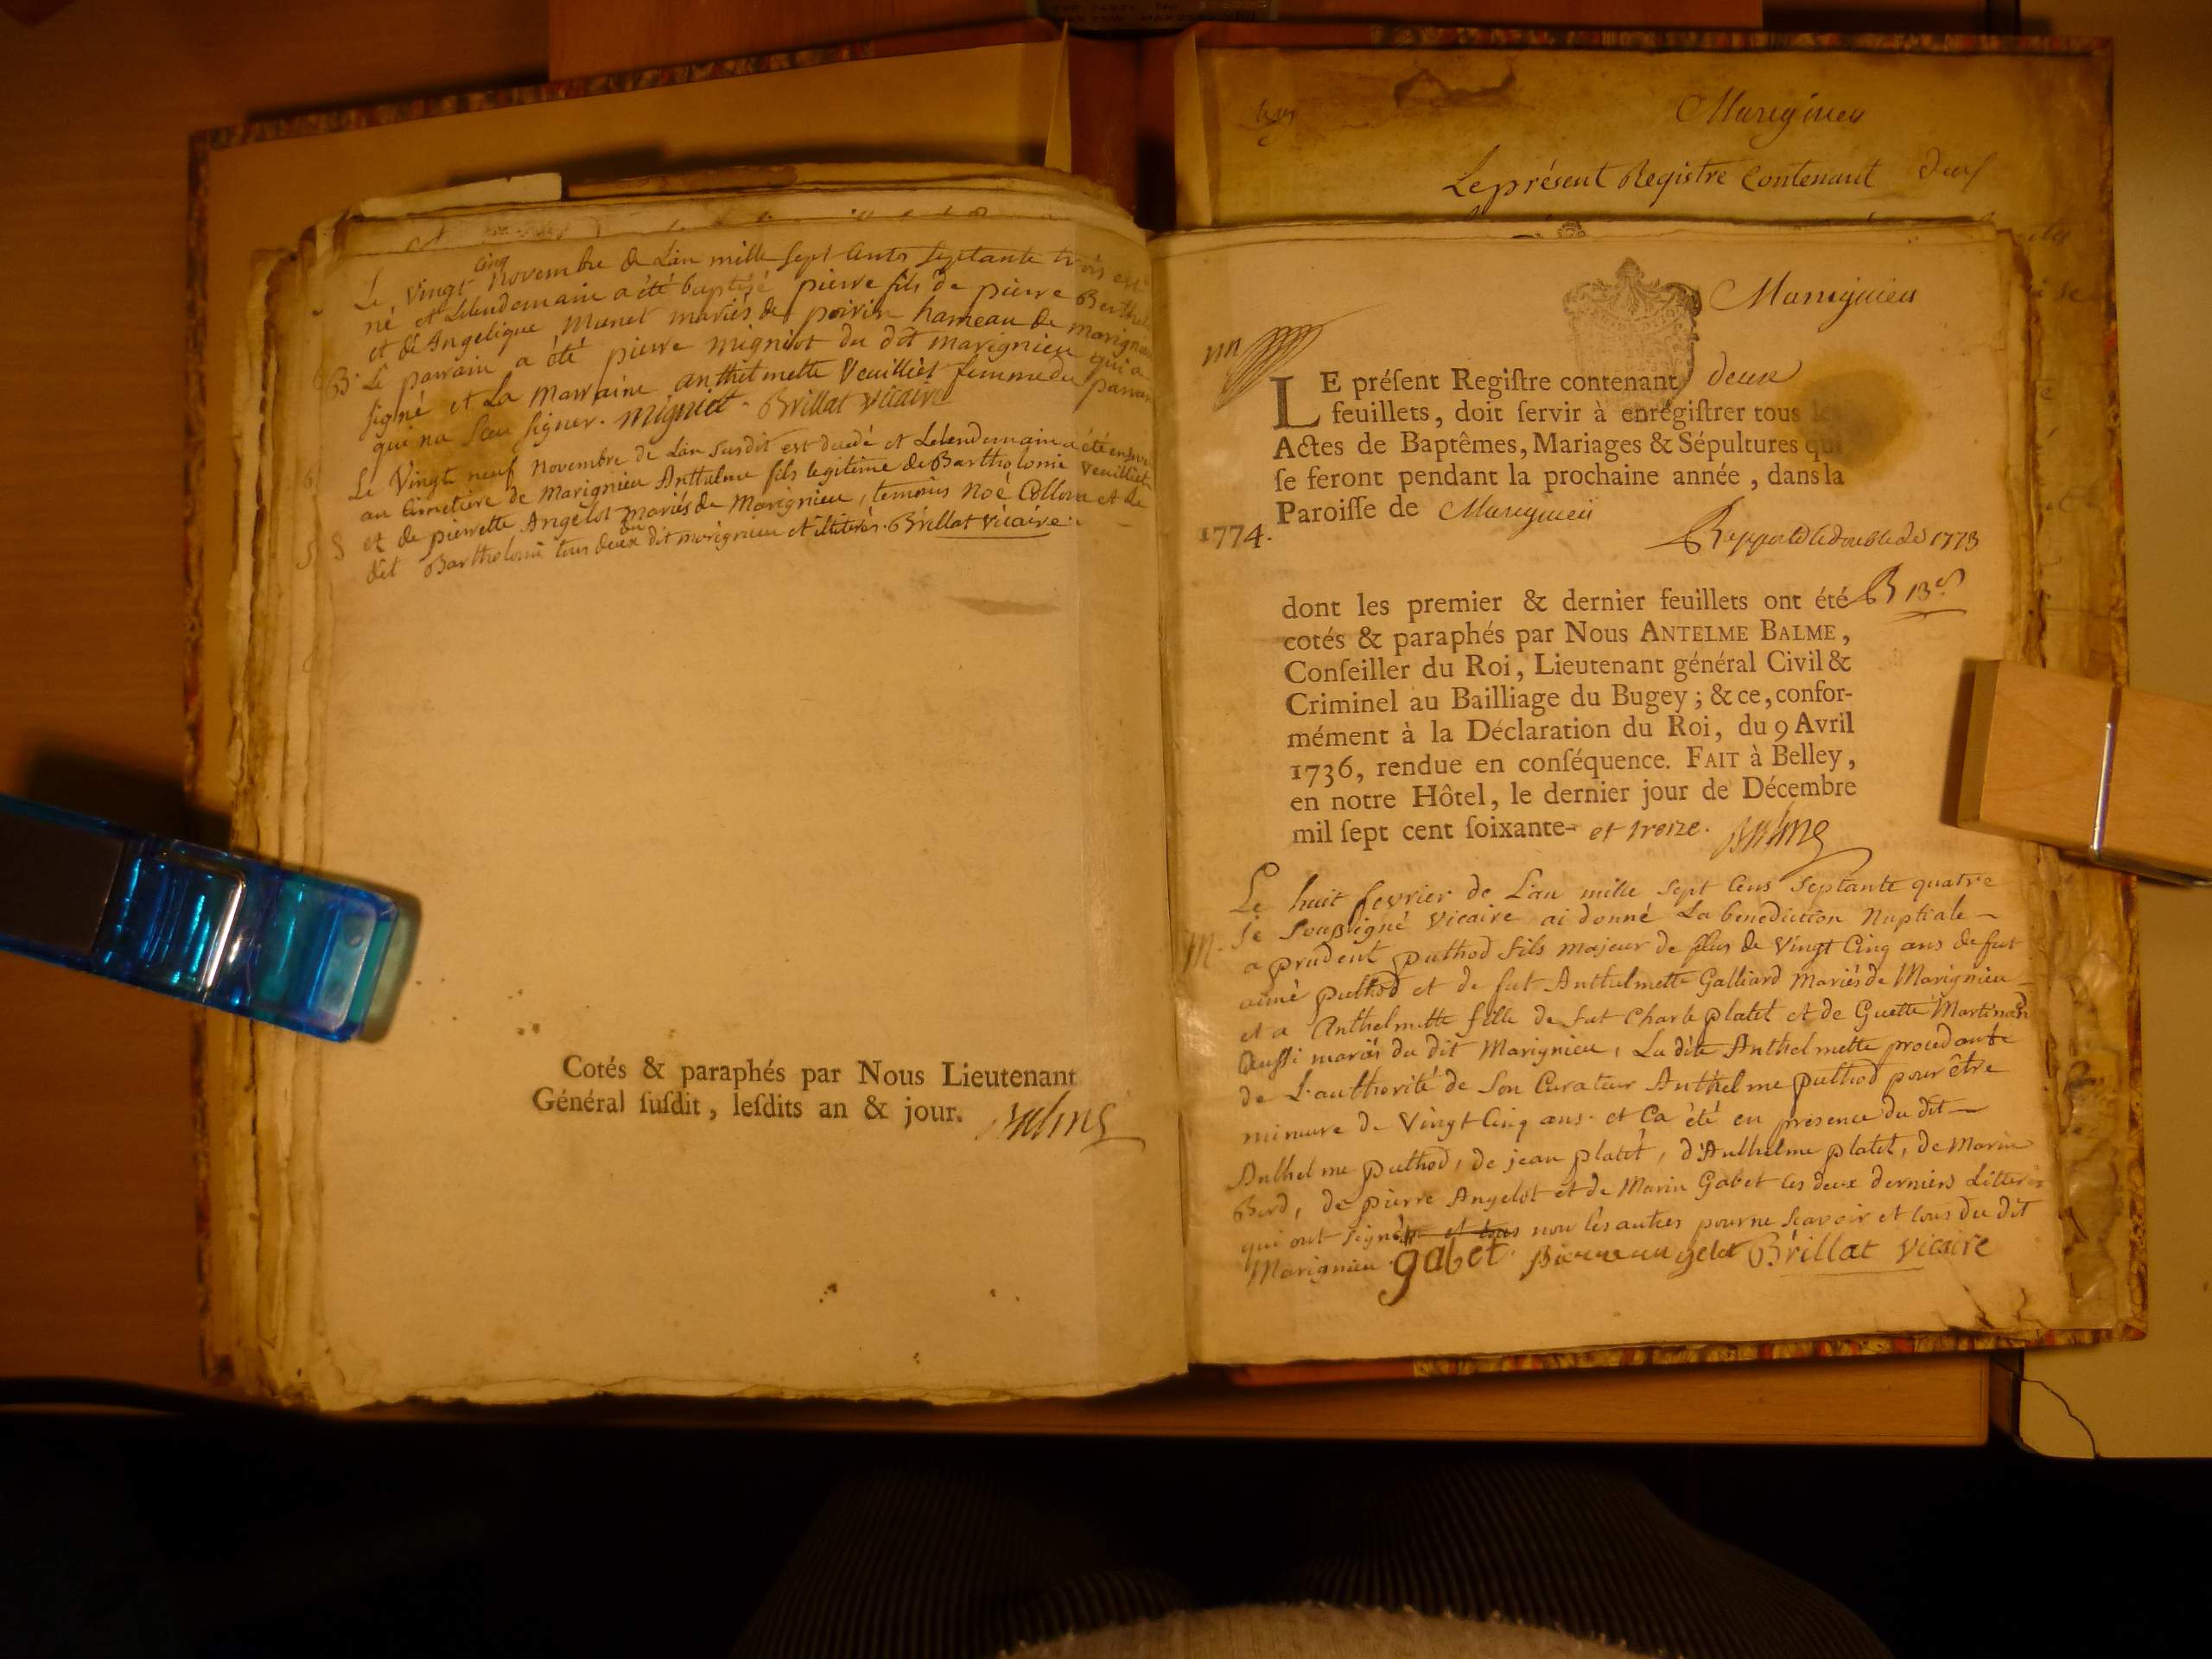 Le vingt cinq novembre de L'an mille sept cents septante trois est
né et Lelendemain a été baptisé pierre fils de pierre
et de Angelique Munet mariés de poirin hameau de marignieu
B. Le parrain a été pierre migniot du dit marignieu qui a
signé et La Marraine anthelmette Veuilliet femme du parrain
qui na sceu signer. migniot. Brillat vicaire
Le Vingt neuf novembre de L'an susdit est decedé et Lelendemain a été
au cimetiere de Marignieu Anthelme fils legitime de Bartholomé Veuilliet
S et de pierrette Angelot mariés de Marignieu, temoins Noé et le
dit Bartholomé tous deux du dit marignieu et illiterés. Brillat vicaire.
Cotés & paraphés par Nous Lieutenant
Général ſuſdit, leſdits an & jour. Balme
Marignieu
Le présent Registre Contenant deux
Marrignieu
LE préſent Regiſtre contenant deux
feuillets, doit ſervir à enrégiſtrer tous les
Actes de Baptêmes, Mariages & Sépultures qui
ſe feront pendant la prochaine année, dans la
Paroiſſe de Marignieu
1774.
Rapporté le double de 1773
dont les premier & dernier feuillets ont été
cotés & paraphés par Nous ANTELME BALME,
Conſeiller du Roi, Lieutenant général Civil &
Criminel au Bailliage du Bugey; & ce, confor-
mément à la Déclaration du Roi, du 9 Avril
1736, rendue en conſéquence. FAIT à Belley,
en notre Hôtel, le dernier jour de Décembre
mil ſept cent ſoixante- et treize. Balme
Le huit fevrier de L'an mille sept cens septante quatre
M. je soussigné vicaire ai donné La benediction Nuptiale
a prudent puthod fils majeur de plus de vingt Cinq ans de fut
aimé puthod et de fut Anthelmette Galliard Mariés de Marignieu
et a Anthelmette fille de fut Charle platet et de Guette Martinand
Aussi mariés du dit Marignieu, La dite Anthelmette procedante
de L'authorité de son Curateur Anthelme puthod pour être
mineure de Vingt Cinq ans. et Ca été en presence du dit
Anthelme puthod, de jean platet, d'Anthelme platet, de Marin
Berd, de pierre Angelot et de Marin Gabet les deux derniers Litterés
qui ont signé et tous non les autres pour ne scavoir et tous du dit
Marignieu. gabet. pierre angelot Brillat vicaire